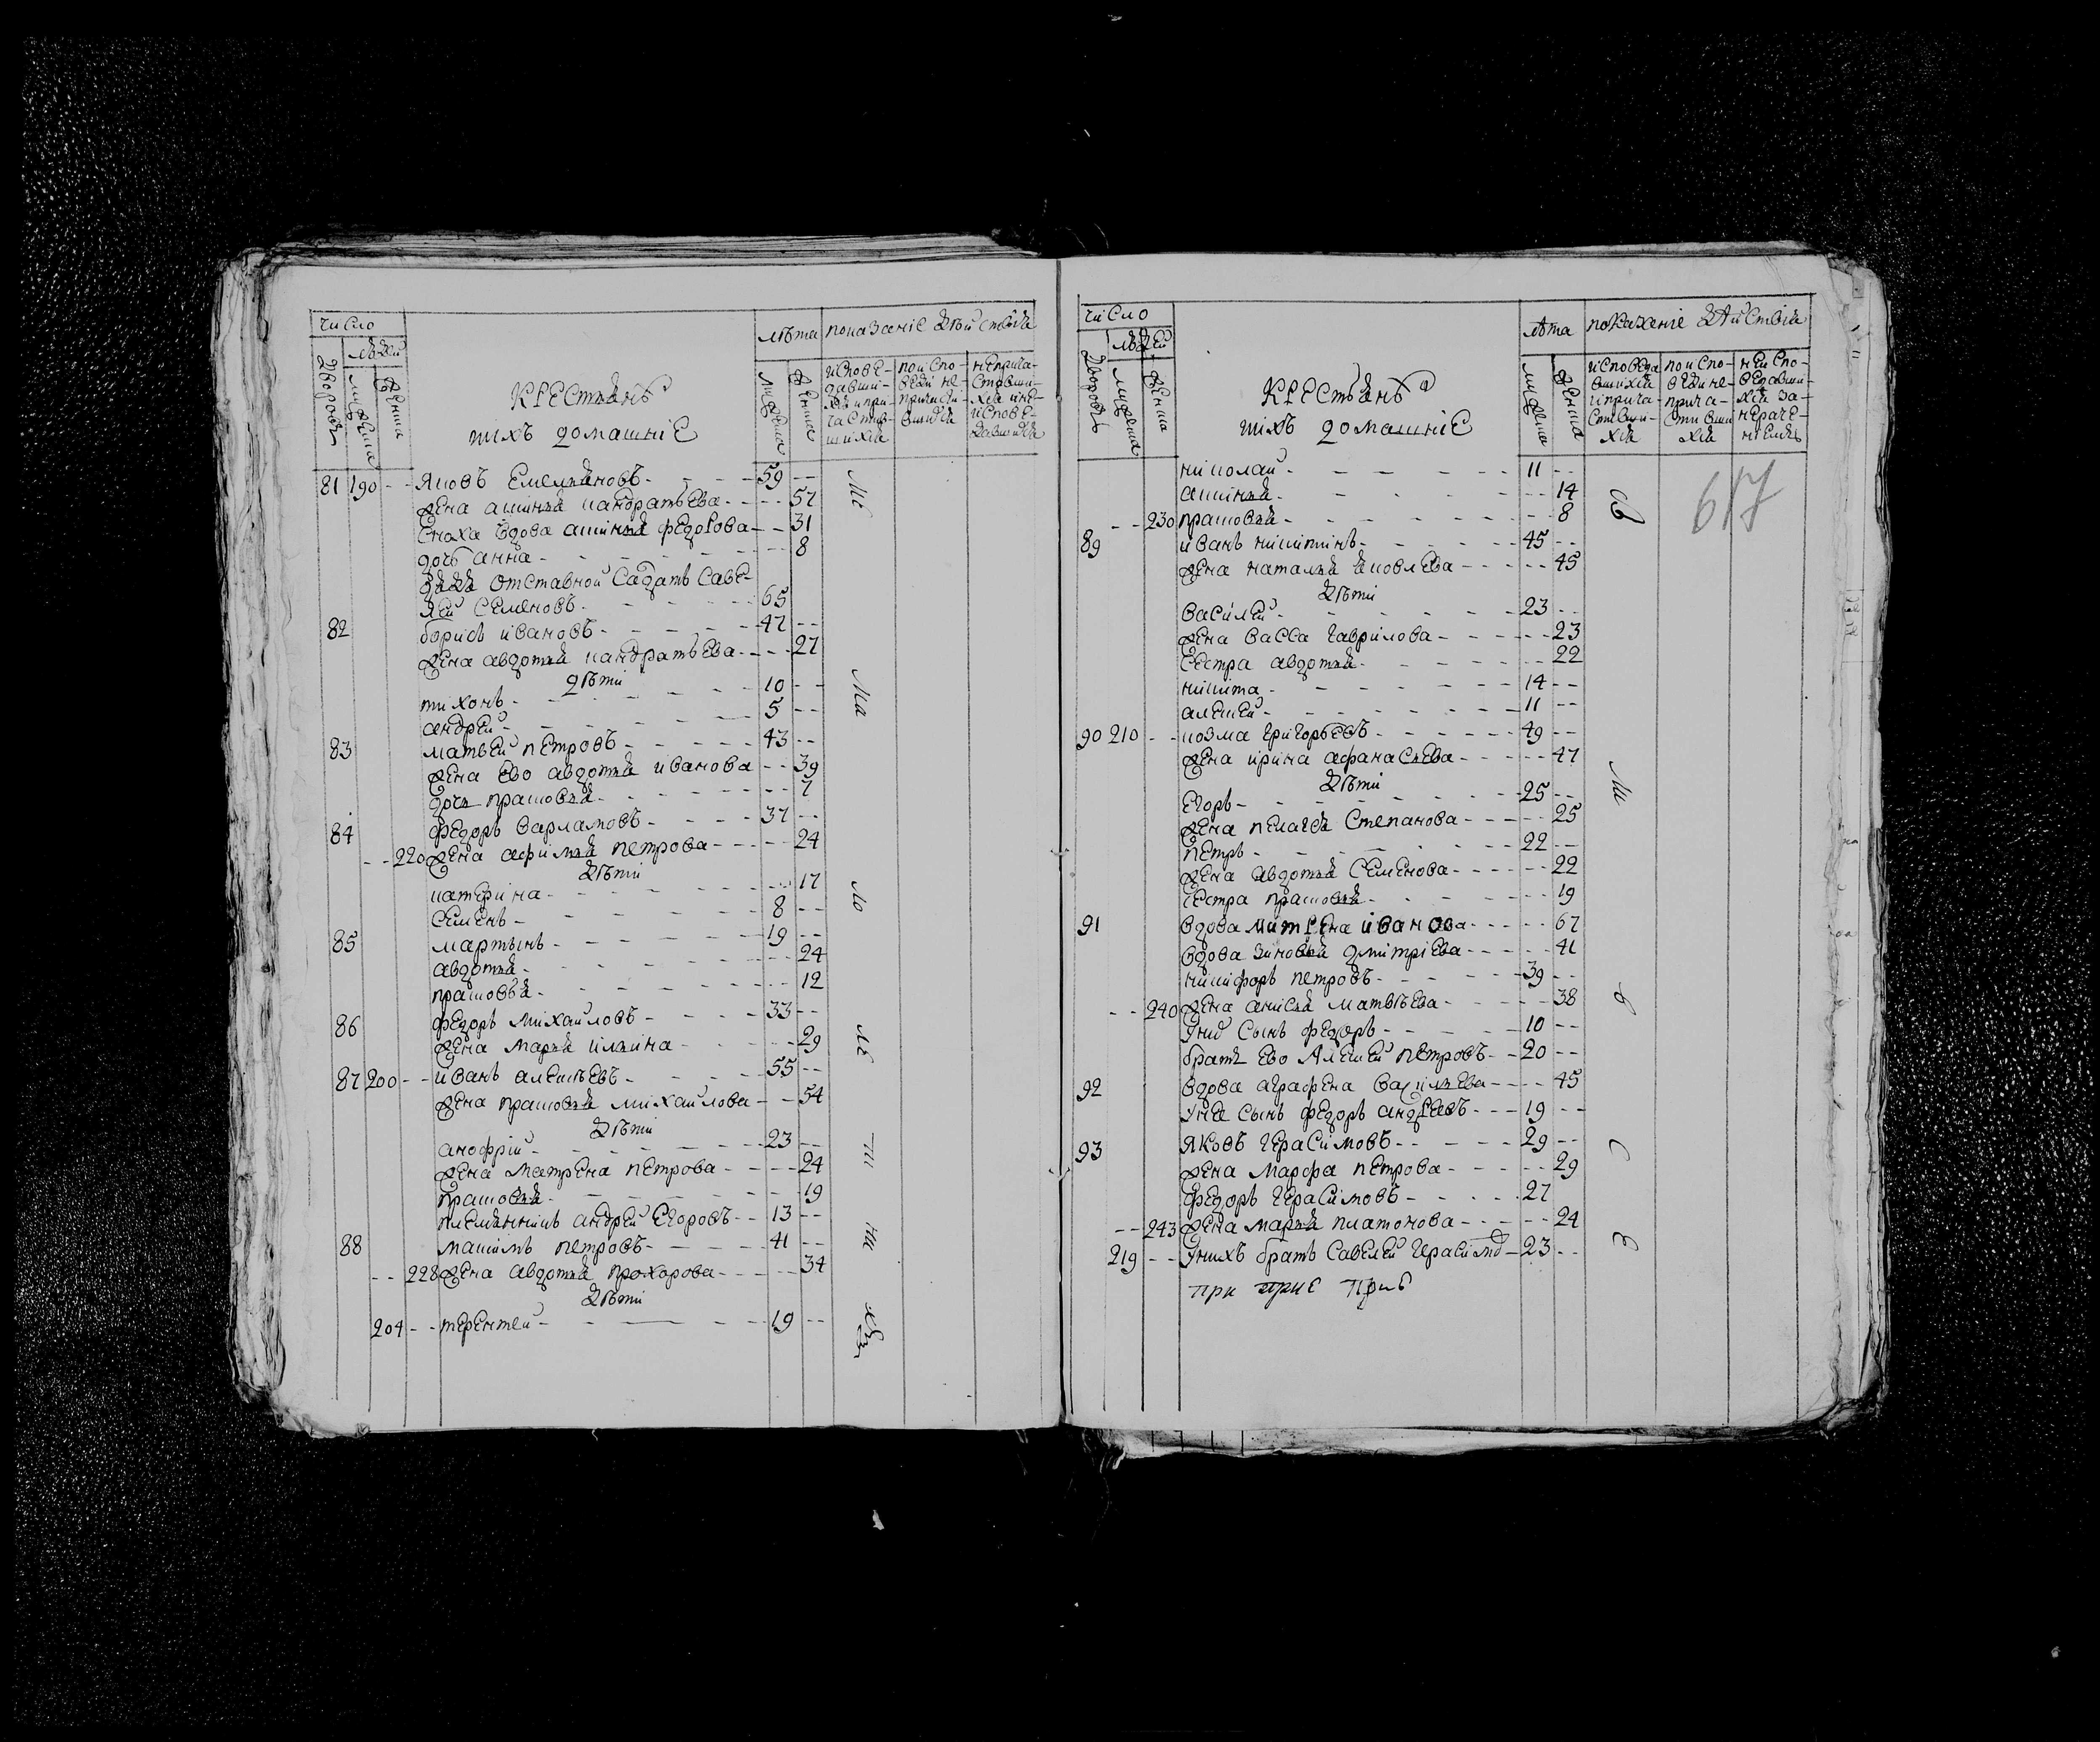 число
лѣта показаніе дѣйствія
людей
дворовъ
мужеска
женска
мужеска
женска
исповѣ-
давши-
хся и при-
частив-
шихся
по испо-
вѣди не-
причасти-
вшихся
неприча-
стивши-
хся и не-
исповѣ-
давшихся
крестьянъ
тихъ домашніе
81 190 -- Яковъ Емельяновъ 59 --
жена аксинья кандратьева -- 57
сноха вдова аксинья федорова -- 31
дочь анна -- 8
дядя отставной садатъ саве-
лей семеновъ 65
82 борисъ ивановъ 47 --
жена авдотья кандратьева -- 27
дѣти
тихонъ 10 --
андрей 5 --
83 матвей петровъ 43 --
жена ево авдотья иванова -- 39
дочь прасковья -- 7
84 федоръ варламовъ 37 --
-- 220 жена афимья петрова -- 24
дѣти
катерина -- 17
семенъ 8 --
85 мартынъ 19 --
авдотья -- 24
прасковья -- 12
86 федоръ михайловъ 33 --
жена марья ильина -- 29
87 200 -- иванъ алексѣевъ 55 --
жена прасковья михайлова -- 54
дѣти
анофрій 23 --
жена матрена петрова -- 24
прасковья -- 19
племянникъ андрей егоровъ 13 --
88 максимъ петровъ 41 --
-- 228 жена авдотья прохорова -- 34
дѣти
204 -- терентей 19 --
число
лѣта показаніе дѣйствія
людей
дворовъ
мужеска
женска
мужеска
женска
исповѣда
вшихся
и прича-
стивши-
хся
по испо-
вѣди не-
прича-
стивши
хся
не испо-
ведавши-
хся за-
нераче-
ніемъ
крестьянъ
тихъ домашніе
николай 11 --
аксинья -- 14
-- 230 прасковья -- 8
89 иванъ никитинъ 45 --
жена наталья яковлева -- 45
дѣти
василей 23 --
жена васса гаврилова -- 23
сестра авдотья -- 22
никита 14 --
алексей 11 --
90 210 -- козма григорьевъ 49 --
жена ирина афанасьева -- 47
дѣти
егоръ 25 --
жена пелагея степанова -- 25
петръ 22 --
жена авдотья семенова -- 22
сестра прасковья -- 19
91 вдова матрена иванова -- 67
вдова зиновья дмитріева -- 41
никифоръ петровъ 39 --
-- 240 жена анисья матвѣева -- 38
у них сынъ федоръ 10 --
братъ ево алексей петровъ 20 --
92 вдова аграфена васильева -- 45
у нея сынъ федоръ андреевъ 19 --
93 яковъ герасимовъ 29 --
жена марфа петрова -- 29
федоръ герасимовъ 27
-- 243 жена марья платонова -- 24
219 -- у нихъ братъ савелей герасимо 23 --
617